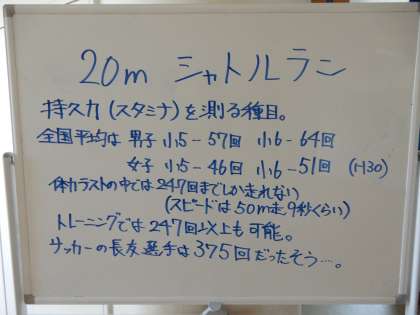 20m シャトルラン
持久力(スタミナ)を測る種目。
全国平均は 男子 小5-57回 小6-64回
女子 小5-46回 小6-51回 (H30)
体力テストの中では247回までしか走れない
(スピードは50m走9秒くらい)
トレーニングでは247回以上も可能。
サッカーの長友選手は375回だったそう…。